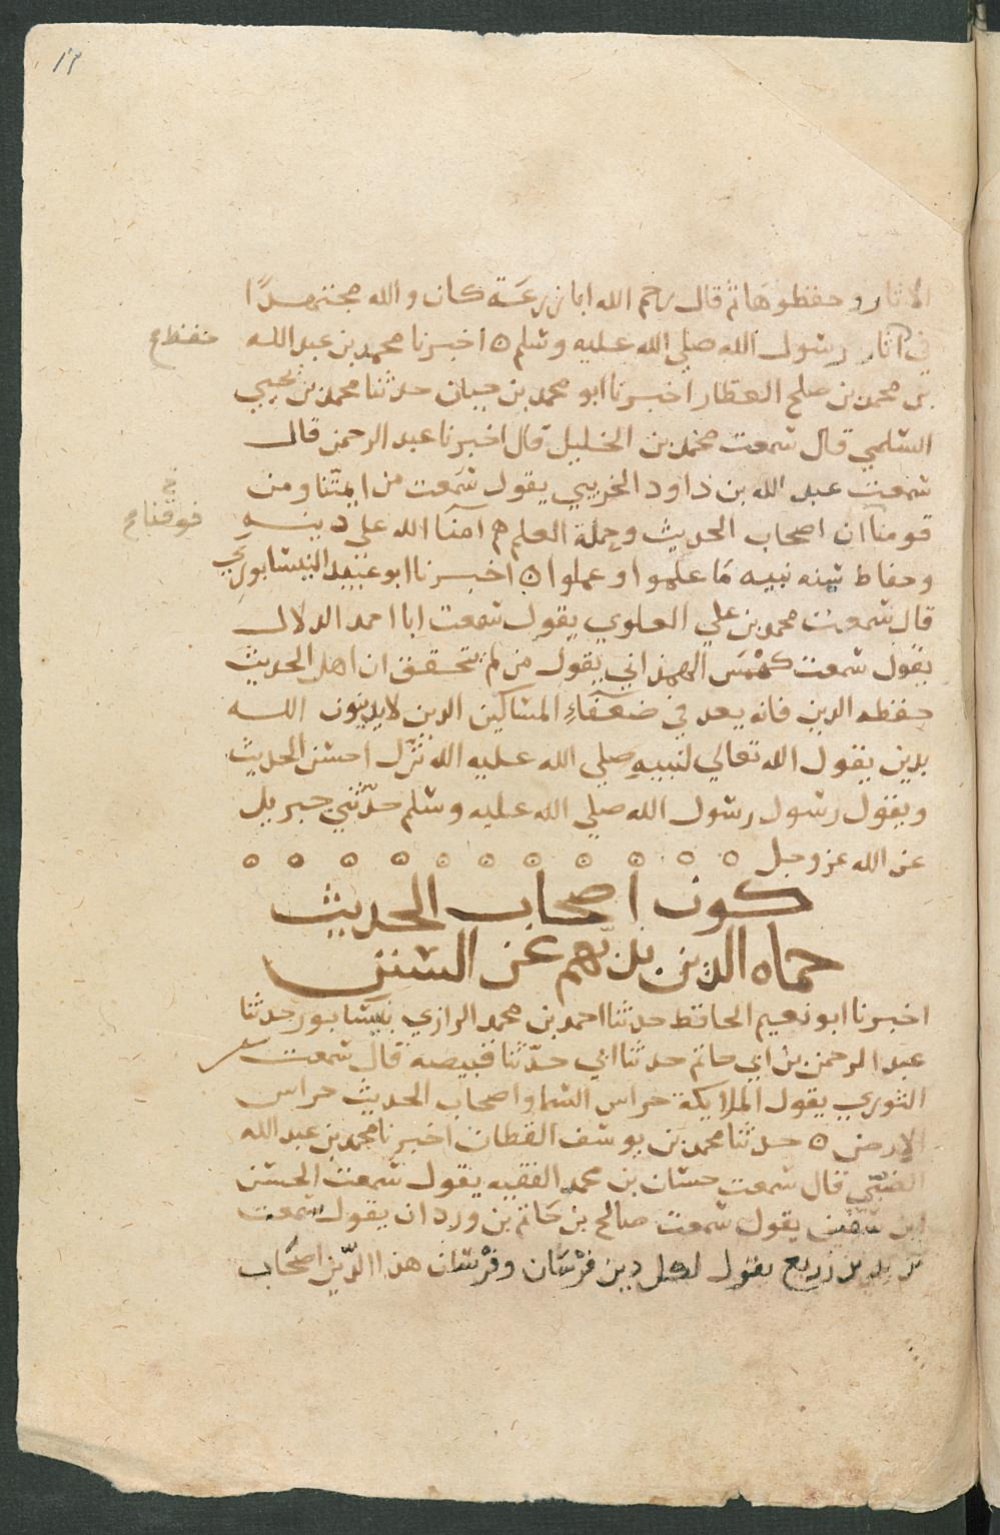 ١٣
الاثار وحفظوهاثم قال رحم الله ابا زرعة كان والله مجتهدا
في اثار رسول الله صلي الله عليه وسلم ٥ اخبرنا محمد بن عبد الله
بن محمد بن صلح العطار اخبرنا ابو محمد بن حيان حدثنا محمد بن يحيي
السلمي قال سمعت محمد بن الخليل قال اخبرنا عبد الرحمن قال
سمعت عبد الله بن داود الخريبي يقول سمعت من ايمتنا ومن
فوقنا ان اصحاب الحديث وحملة العلم هم امنا الله علي دينه
وحفاط سنه نبيه ما علموا وعملوا ٥ اخبرنا ابو عبيد النيسابوري
قال سمعت محمد بن علي العلوي يقول سمعت ابا احمد الدلال
يقول سمعت كهمس الهمذاني يقول من لم يتحقق ان اهل الحديث
حفظه الدين فانه يعد في ضعفاء المساكين الذين لا يدينون الله
بدين يقول الله تعالي لنبيه صلي الله عليه الله نزل احسن الحديث
ويقول رسول رسول الله صلي الله عليه وسلم حدثني جبريل
عن الله عز وجل ٥ ٥ ٥ ٥ ٥ ٥ ٥ ٥ ٥ ٥ ٥
كون اصحاب الحديث
حماه الدين بذبهم عن السنن
اخبرنا ابو نعيم الحافظ حدثنا احمد بن محمد الرازي بنيسابور حدثنا
عبد الرحمن بن ابي حاتم حدثنا ابي حدثنا قبيصه قال سمعت
الثوري يقول الملايكة حراس السما واصحاب الحديث حراس
الارض ٥ حدثنا محمد بن يوسف القطان اخبرنا محمد بن عبد الله
الضبي قال سمعت حسان بن محمد الفقيه يقول سمعت الحسن
ابن سفين يقول سمعت صالح بن حاتم بن وردان يقول سمعت
يزيد بن زريع يقول لكل دين فرسان وفرسان هذا الدين اصحاب